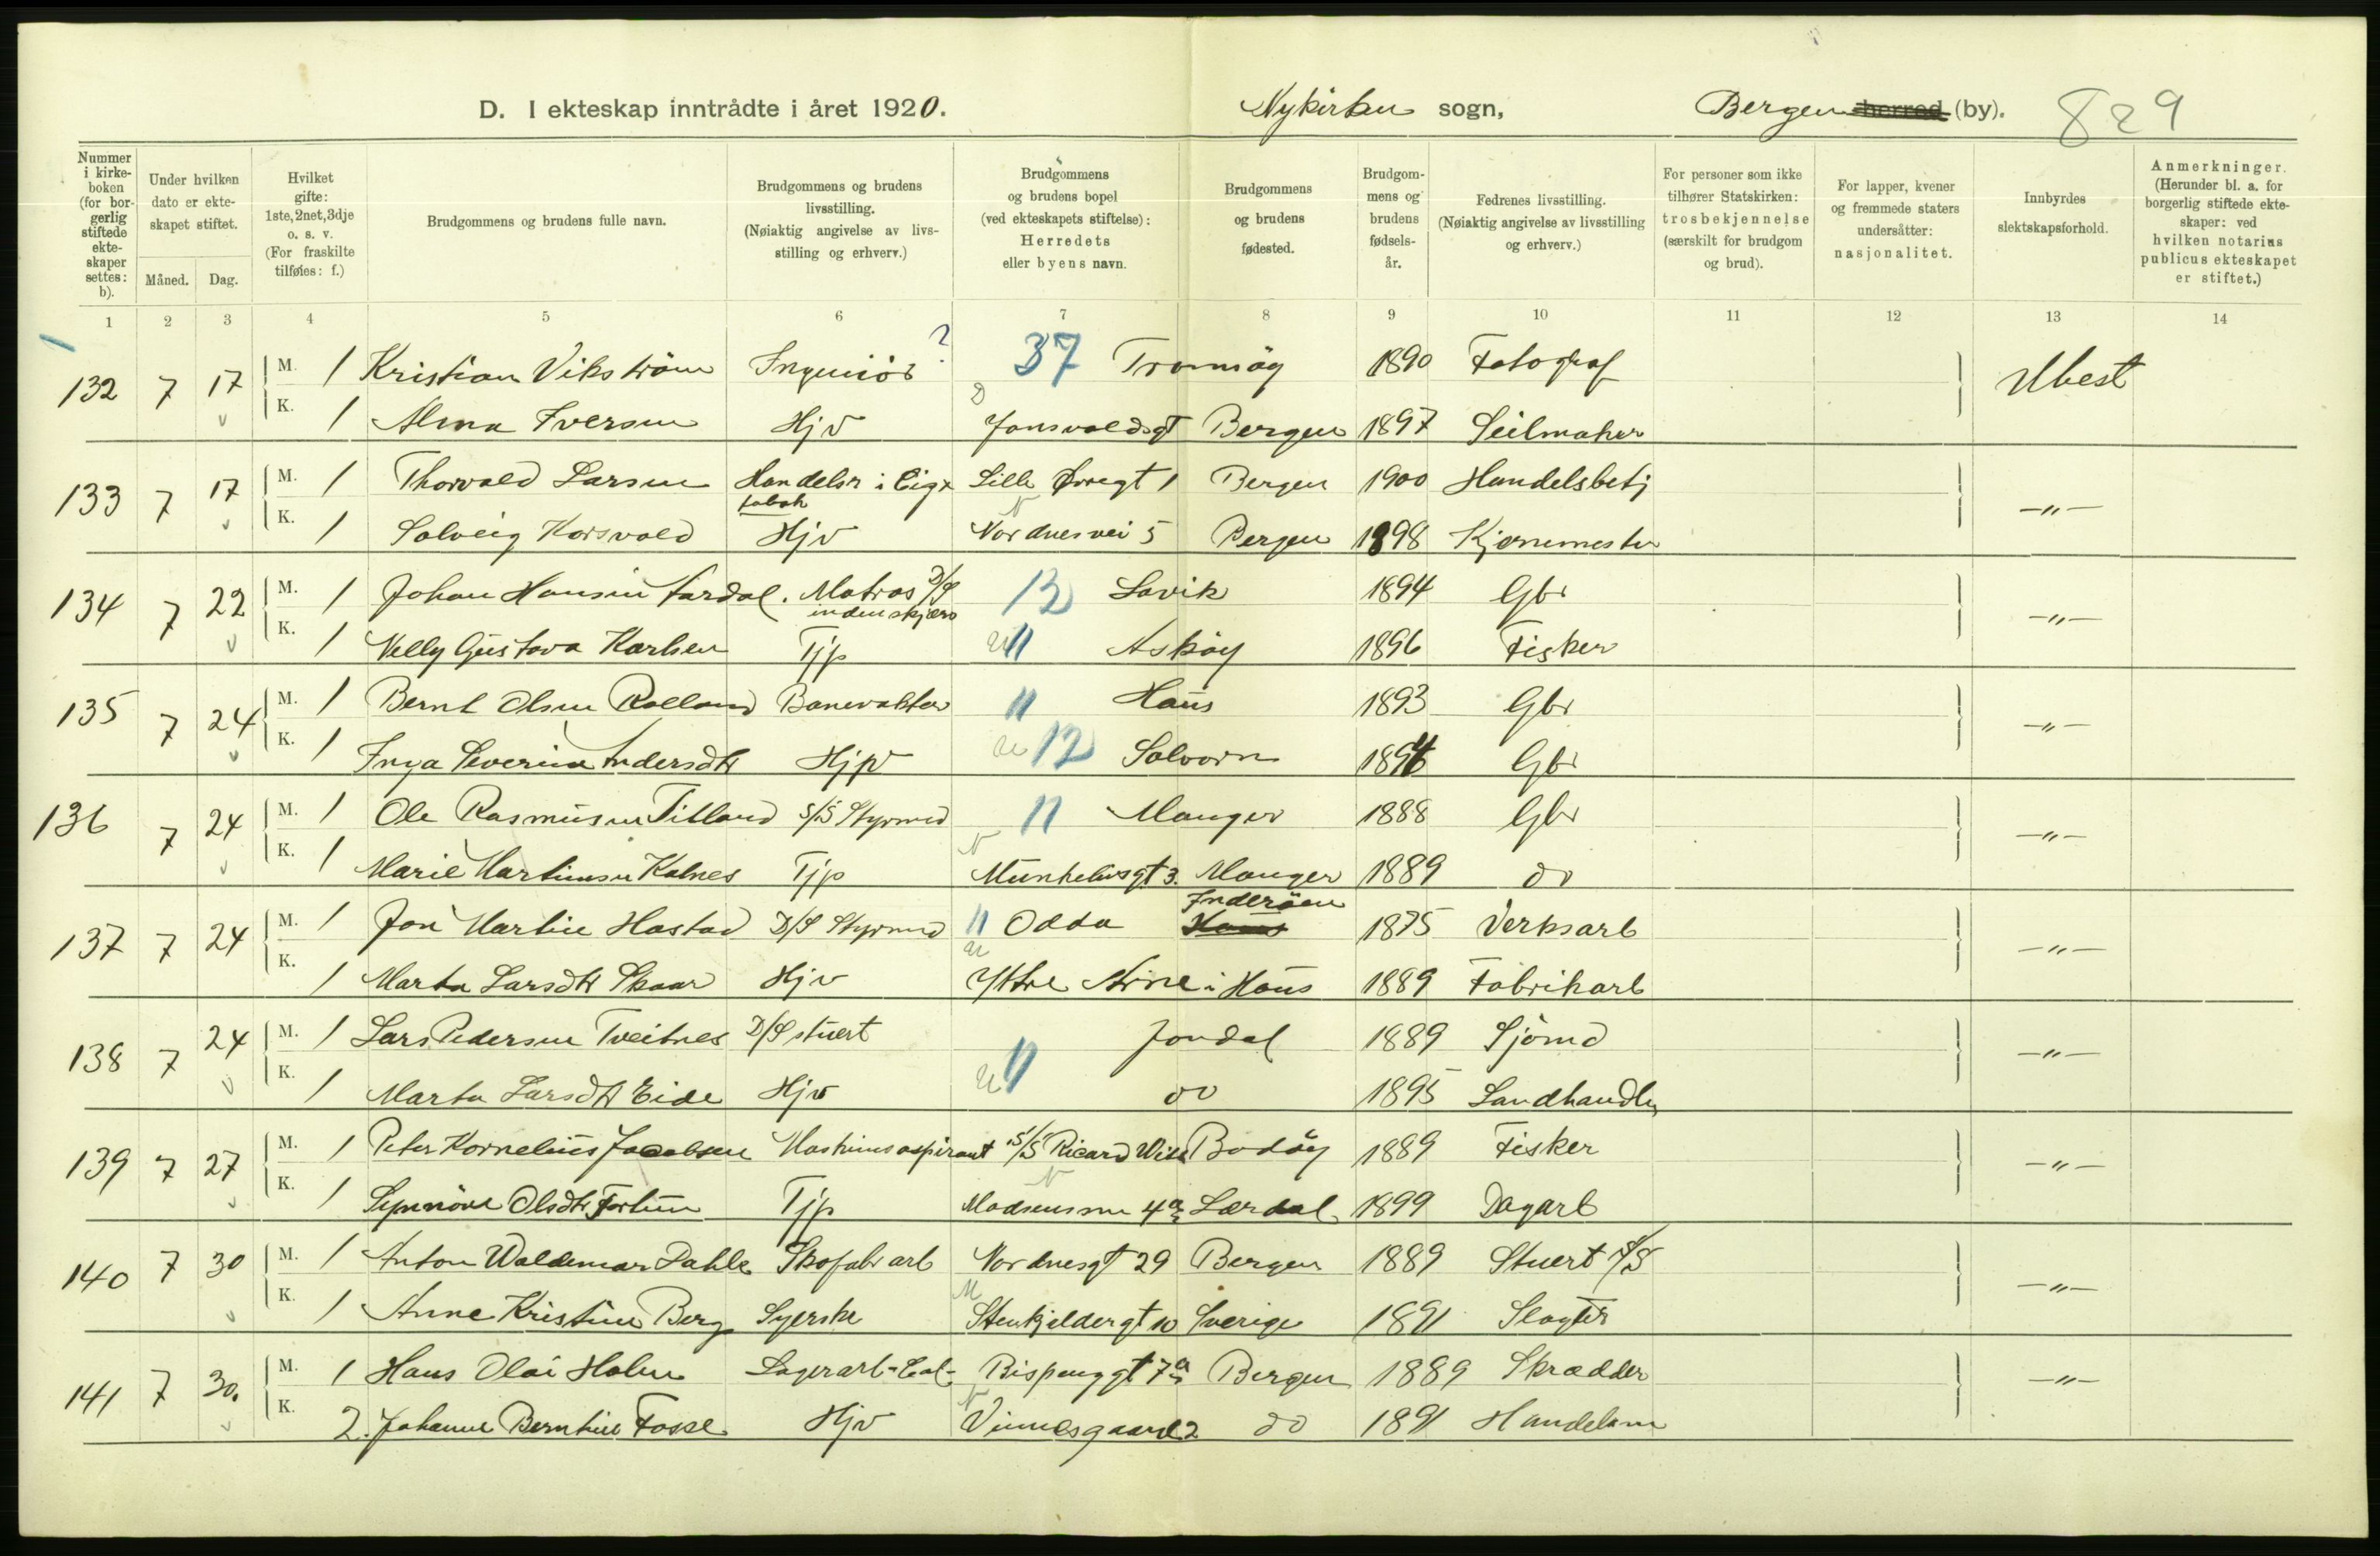 D. I ekteskap inntrådte i året 1920. Nykirken sogn, Bergen herred (by). 829
Nummer i kirke-boken (for bor-gerlig stiftede ekte-skaper settes: b).
Under hvilken dato er ekte-skapet stiftet.
Måned. Dag.
Hvilket gifte: 1ste, 2net, 3dje o. s. v. (For fraskilte tilføies: f.)
Brudgommens og brudens fulle navn.
Brudgommens og brudens livsstilling. (Nøiaktig angivelse av livs-stilling og erhverv.)
Brudgommens og brudens bopel (ved ekteskapets stiftelse): Herredets eller byens navn.
Brudgommens og brudens fødested.
Brudgom-mens og brudens fødsels-år.
Fedrenes livsstilling. (Nøiaktig angivelse av livsstilling og erhverv.)
For personer som ikke tilhører Statskirken: trosbekjennelse (særskilt for brudgom og brud).
For lapper, kvener og fremmede staters undersåtter: nasjonalitet.
Innbyrdes slektskapsforhold.
Anmerkninger. (Herunder bl. a. for borgerlig stiftede ekte-skaper: ved hvilken notarius publicus ekteskapet er stiftet.)
1 2 3 4 5 6 7 8 9 10 11 12 13 14
132 7 17 M. 1 Kristian Vikström Ingeniör ? 37 Tromsöy 1890 Fotograf Ubest
K. 1 Alma Iversen Hjv Jonsvoldsgt Bergen 1897 Seilmaker
133 7 17 M. 1 Thorvald Larsen Handelsr i Eig x Lille Øvregt 1 Bergen 1900 Handelsbetj -"-
fabrk
K. 1 Solveig Korsvold Hjv Nordnesvei 5 Bergen 1898 Kjernemester
134 7 22 M. 1 Johan Hansen Aardal. Matros D/S 12 Lavik 1894 Gbr -"-
indenskjærs
K. 1 Nelly Gustava Karlsen Tjp 11 Askøy 1896 Fisker
135 7 24 M. 1 Bernt Olsen Rolland Banevokter 11 Haus 1893 Gbr -"-
K. 1 Inga Severine Andersdtr Hjpv 12 Solvorn 1894 Gbr
136 7 24 M. 1 Ole Rasmusen Titland S/S Styrmd 11 Manger 1888 Gbr -"-
K. 1 Marie Martinsen Kalnes Tjp Munkelivsgt 3. Manger 1889 do
137 7 24 M. 1 Jon Martin Hastad D/S Styrmd 11 Odda Inderöen Haus 1875 Verksarb -"-
K. 1 Marta Larsdtr Skaar Hjv Ytre Arne i Haus 1889 Fabrikarb
138 7 24 M. 1 Lars Pedersen Tveitnes D/S stuert Jondal 1889 Sjömd -"-
K. 1 Marta Larsdtr Eide Hjv 11 do 1895 Landhandler
139 7 27 M. 1 Peter Kornelius Jacobsen Maskinsaspirant S/S Ricard With Bodöy 1889 Fisker -"-
K. 1 Synnöve Olsdtr Fortun Tjp Madsensm 4a Lærdal 1899 Dagarb
140 7 30 M. 1 Anton Waldemar Dahle Skofabr arb Nordnesgt 29 Bergen 1889 Stuert S/S -"-
K. 1 Anne Kristine Berg Syerske Stenkjeldergt 10 Sverige 1891 Slagter
141 7 30. M. 1 Hans Olai Holm Lagerarb Bispenggt 7a Bergen 1889 Skrædder -"-
K. 2. Johanne Berntine Fosse Hjv Vinnesgaard 2 do 1891 Handelsm